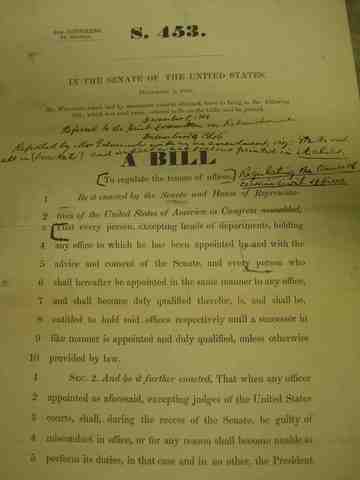 39th CONGRESS,
2d Session.
S. 453.
IN THE SENATE OF THE UNITED STATES.
December 3, 1866.
Mr. Williams asked, and by unanimous consent obtained, leave to bring in the following
bill; which was read twice, ordered to lie on the table, and be printed.
December 5, 1866
Referred to the Joint Committee on Retrenchment
December 10, 1866
Reported by Mr. Edmunds with an amendment, viz: Strike out
all in [brackets] and insert printed in italics.
A BILL
[To regulate the tenure of offices] Regulating the tenure of
certain civil offices
1 Be it enacted by the Senate and House of Representa-
2 tives of the United States of America in Congress assembled,
3 [That every person, excepting heads of departments, holding
4 any office to which he has been appointed by and with the
5 advice and consent of the Senate, and every person who
6 shall hereafter be appointed in the same manner to any office,
7 and shall become duly qualified therefor, is, and shall be,
8 entitled to hold said offices respectively until a successor in
9 like manner is appointed and duly qualified, unless otherwise
10 provided by law.
1 Sec. 2. And be it further enacted, That when any officer
2 appointed as aforesaid, excepting judges of the United States
3 courts, shall, during the recess of the Senate, be guilty of
4 misconduct in office, or for any reason shall become unable to
5 perform its duties, in that case and in no other, the President